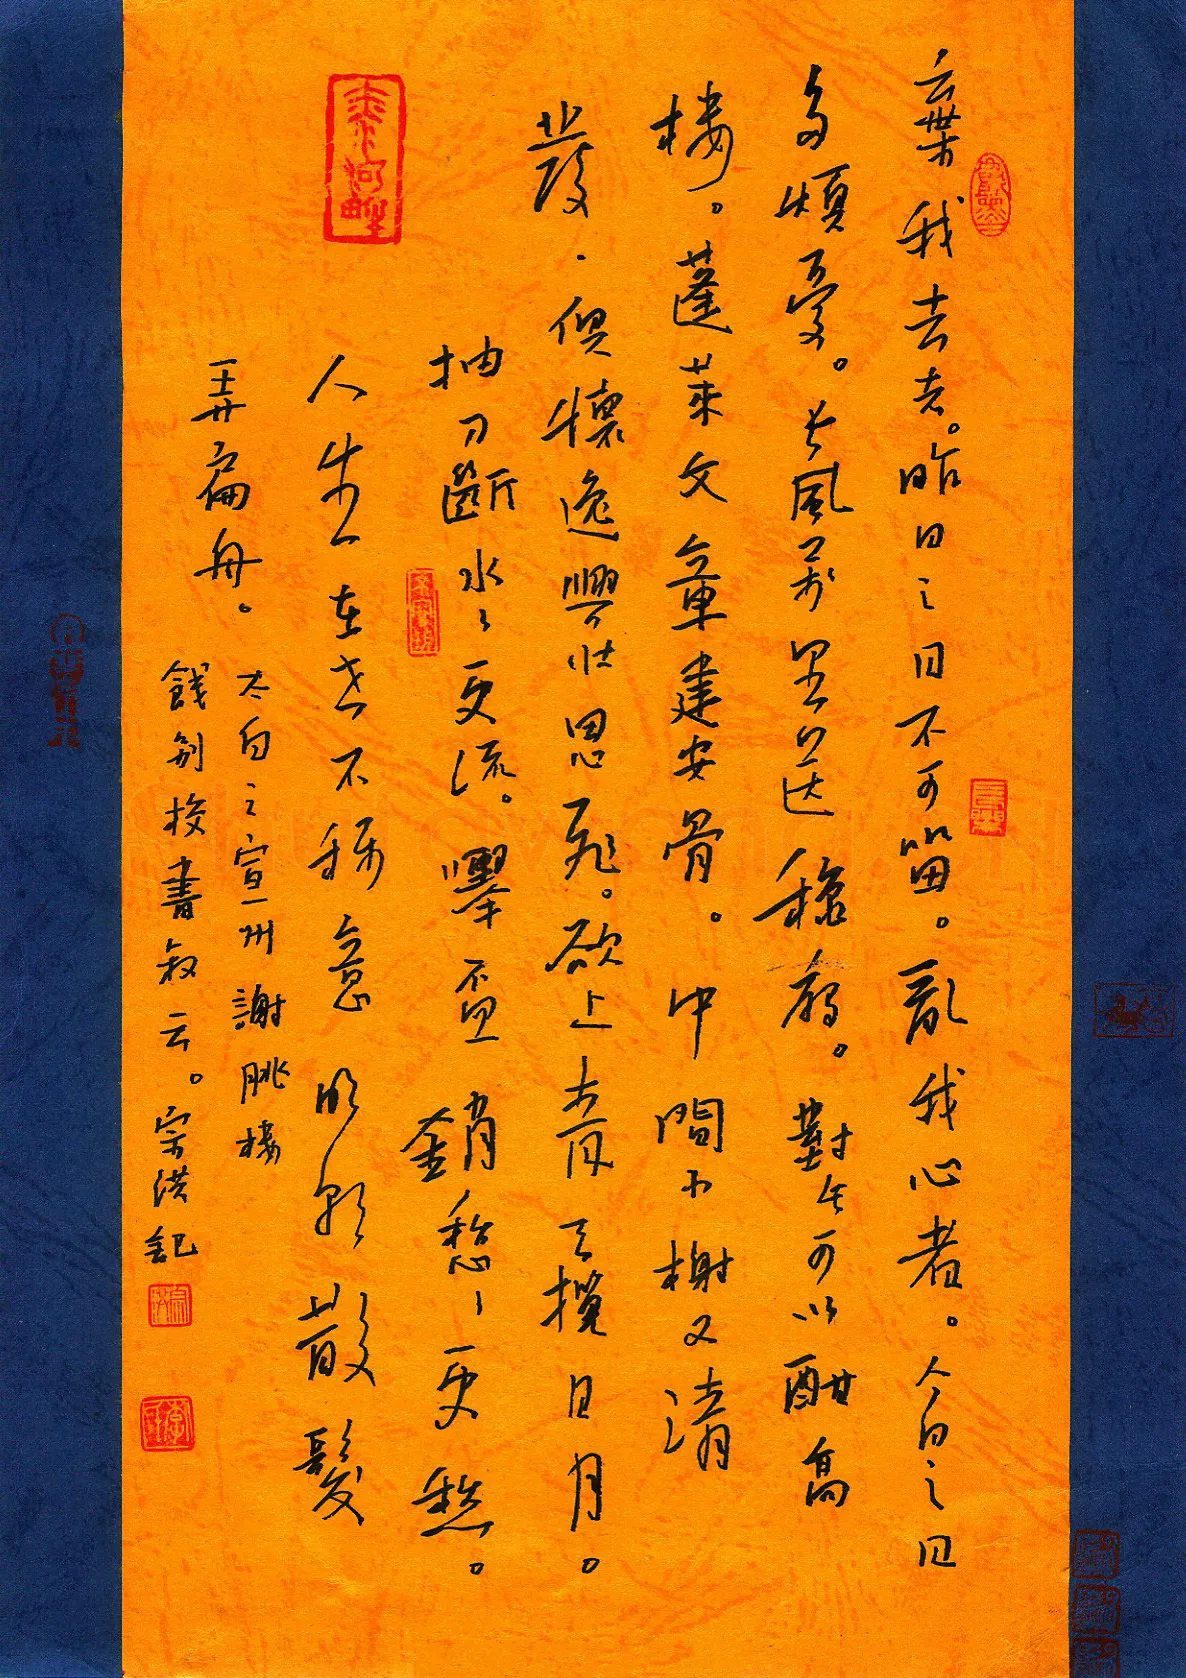 棄我去者。昨日之日不可留。亂我心者。今日之日
多煩憂。長風萬里送秋雁。對此可以酣高
樓。蓬萊文章建安骨。中間小榭又清
發。俱懷逸興壯思飛。欲上青天攬日月。
抽刀斷水々更流。舉杯銷愁々更愁。
人生在世不稱意明朝散髮
弄扁舟。
太白之宣州謝朓樓
餞別校書叔云。宗洪記